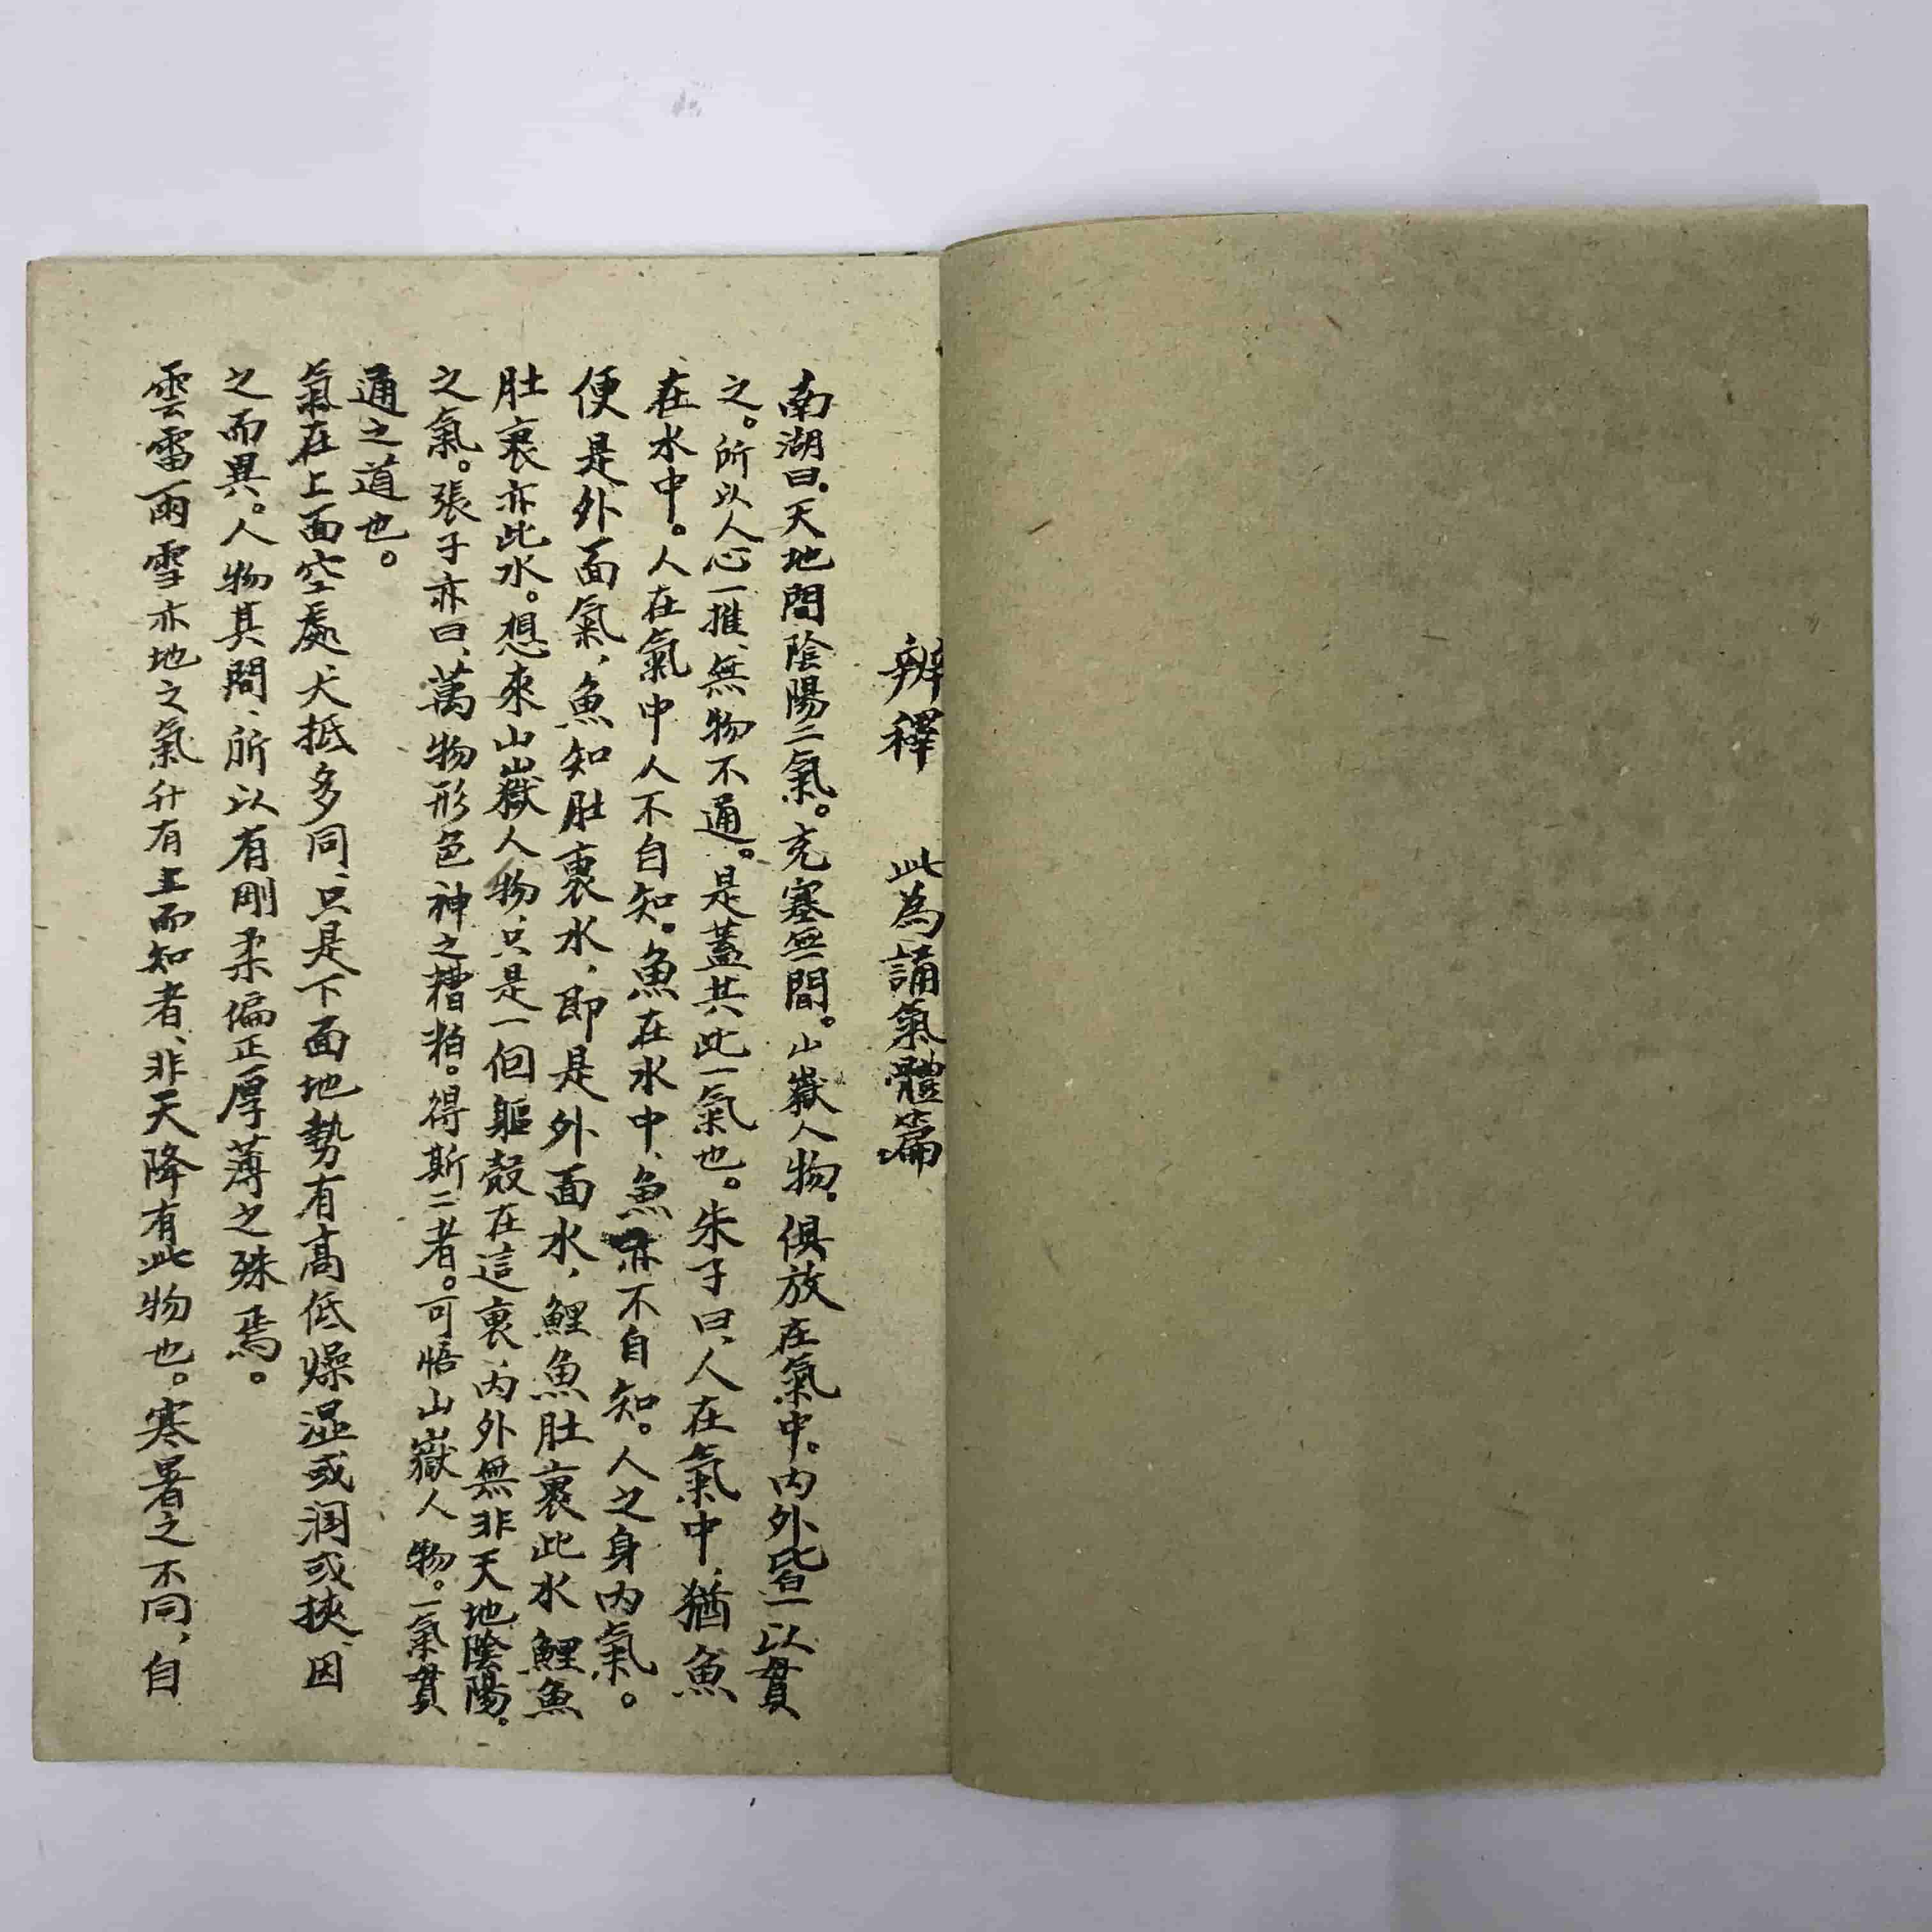 辨釋 此為誦氣體篇
南湖曰.天地間陰陽二氣。充塞無間。山嶽人物。俱放在氣中。内外皆一以貫
之。所以人心一推、無物不通。是蓋共此一氣也。朱子曰、人在氣中、猶魚
在水中。人在氣中人不自知。魚在水中、魚亦不自知。人之身内氣。
便是外面氣,魚知肚裏水,即是外面水,鯉魚肚裏此水鯉魚
肚裏亦此水。想來山嶽人物、只是一個軀殻在這裏、内外無非天地陰陽。
之氣。張子亦曰、萬物形色神之糟粕。得斯二者。可悟山嶽人物。一氣貫
通之道也。
氣在上面空處犬抵多同、只是下面地勢有高低燥湿或润或挾、因
之而異。人物其間、所以有剛柔偏正厚薄之殊焉。
雲雷雨雪亦地之氣升有主而知者、非天降有此物也。寒暑之不同,自